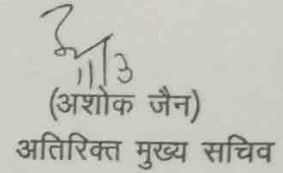 11/3
(अशोक जैन)
अतिरिक्त मुख्य सचिव